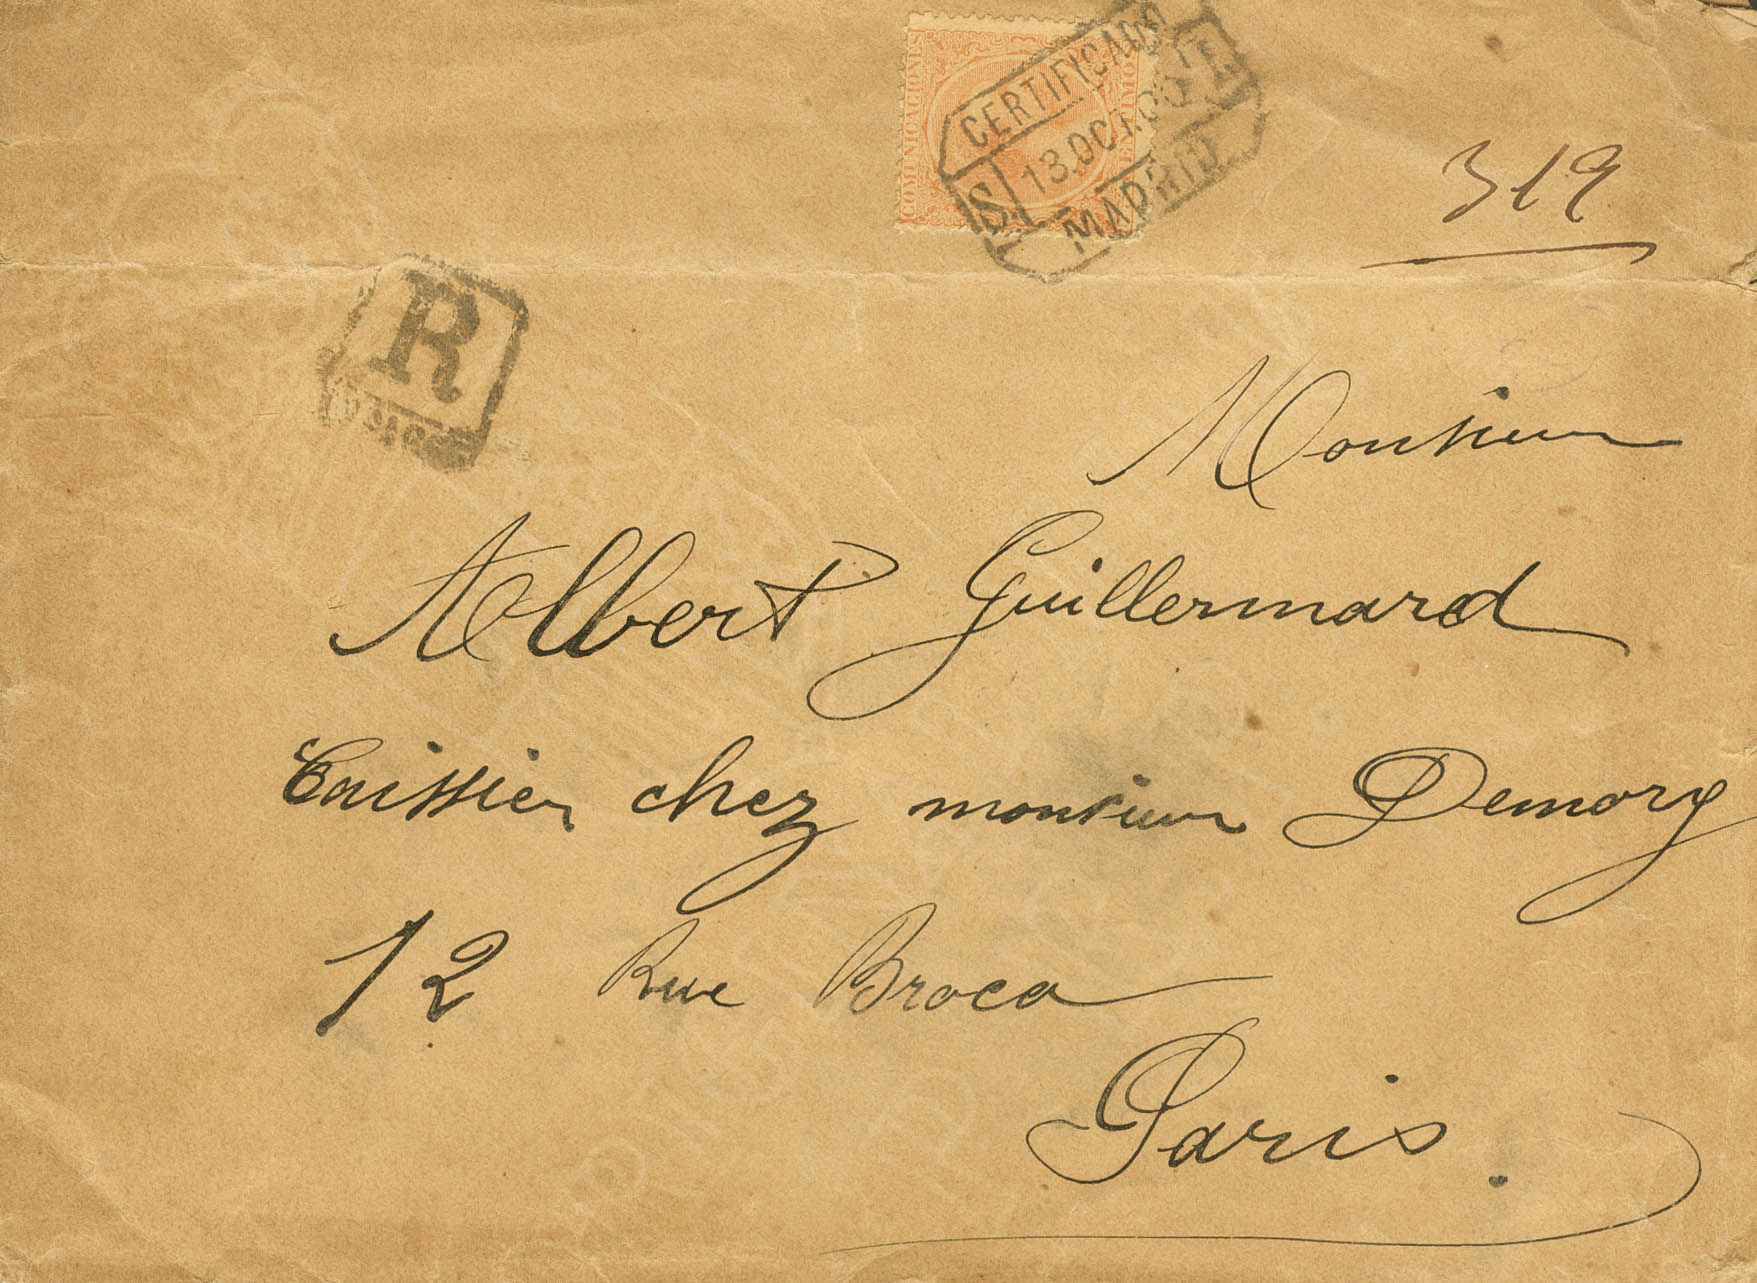 COMUNICACIONES
CERTIFICADO
S. 13.OCT.90 T.
MADRID
319
R
Monsieur
Albert Guillermard
Caissier chez monsieur Demory
12 Rue Broca
Paris.